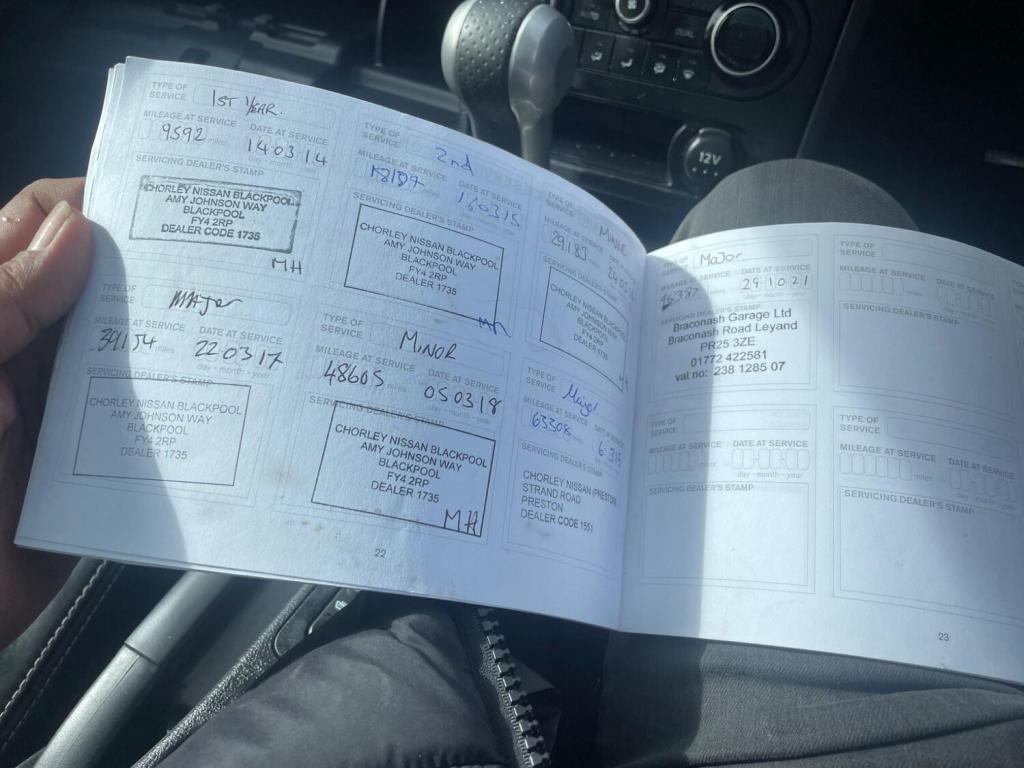 TYPE OF SERVICE 1ST YEAR.
MILEAGE AT SERVICE DATE AT SERVICE
9592 miles 14 03 14
day - month - year
SERVICING DEALER'S STAMP
CHORLEY NISSAN BLACKPOOL
AMY JOHNSON WAY
BLACKPOOL
FY4 2RP
DEALER CODE 1735
MH
TYPE OF SERVICE 2nd
MILEAGE AT SERVICE DATE AT SERVICE
miles 16 03 15
day - month - year
SERVICING DEALER'S STAMP
CHORLEY NISSAN BLACKPOOL
AMY JOHNSON WAY
BLACKPOOL
FY4 2RP
DEALER 1735
MH
SERVICE Minor
MILEAGE AT SERVICE
29183
SERVICING DEALER'S
CHORLEY NISSAN BLACKPOOL
AMY JOHNSON WAY
BLACKPOOL
FY4 2RP
DEALER 1735
MH
TYPE OF SERVICE Major
MILEAGE AT SERVICE DATE AT SERVICE
39154 miles 22 03 17
day - month - year
SERVICING DEALER'S STAMP
CHORLEY NISSAN BLACKPOOL
AMY JOHNSON WAY
BLACKPOOL
FY4 2RP
DEALER 1735
TYPE OF SERVICE MINOR
MILEAGE AT SERVICE DATE AT SERVICE
48605 miles 05 03 18
day - month - year
SERVICING DEALER'S STAMP
CHORLEY NISSAN BLACKPOOL
AMY JOHNSON WAY
BLACKPOOL
FY4 2RP
DEALER 1735
MH
TYPE OF SERVICE Major
MILEAGE AT SERVICE DATE AT SERVICE
SERVICING DEALER'S STAMP
CHORLEY NISSAN (PRESTON)
STRAND ROAD
PRESTON
DEALER CODE 1551
22
TYPE OF SERVICE Major
MILEAGE AT SERVICE DATE AT SERVICE
miles 29 10 21
day - month - year
SERVICING DEALER'S STAMP
Braconash Garage Ltd
Braconash Road Leyand
PR25 3ZE
01772 422581
vat no: 238 1285 07
TYPE OF SERVICE
MILEAGE AT SERVICE DATE AT SERVICE
SERVICING DEALER'S STAMP
TYPE OF SERVICE
MILEAGE AT SERVICE DATE AT SERVICE
miles day - month - year
SERVICING DEALER'S STAMP
TYPE OF SERVICE
MILEAGE AT SERVICE DATE AT SERVICE
miles day - month - year
SERVICING DEALER'S STAMP
23
DUAL
12V